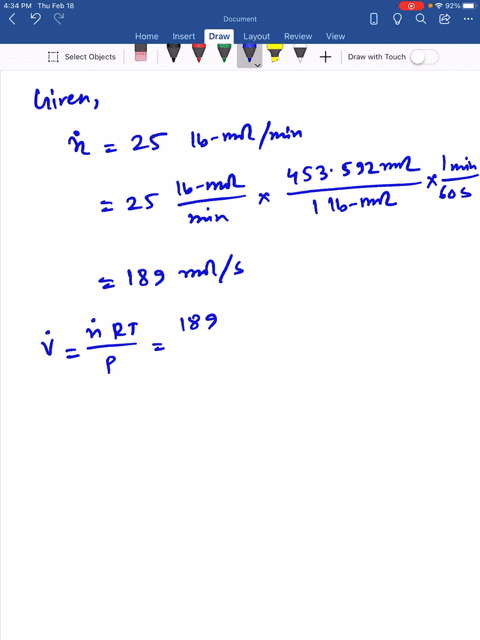 4:34 PM Thu Feb 18
92%
Document
Home Insert Draw Layout References Review View
Select Objects
Draw with Touch
Given,
ṅ = 25 lb-mol/min
= 25 lb-mol/min × 453.592 mol/1 lb-mol × 1 min/60 s
= 189 mol/s
V̇ = ṅRT/P = 189